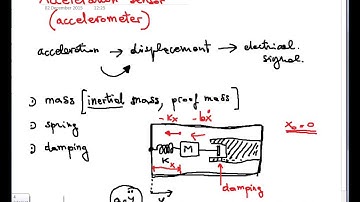 Acceleration sensor
02 December 2015 12:25
(accelerometer)
acceleration → displacement → electrical signal.
① mass [inertial mass, proof mass]
② spring
③ damping
-kx -bẋ
x₀ = 0
K M
x
damping
a = ÿ y